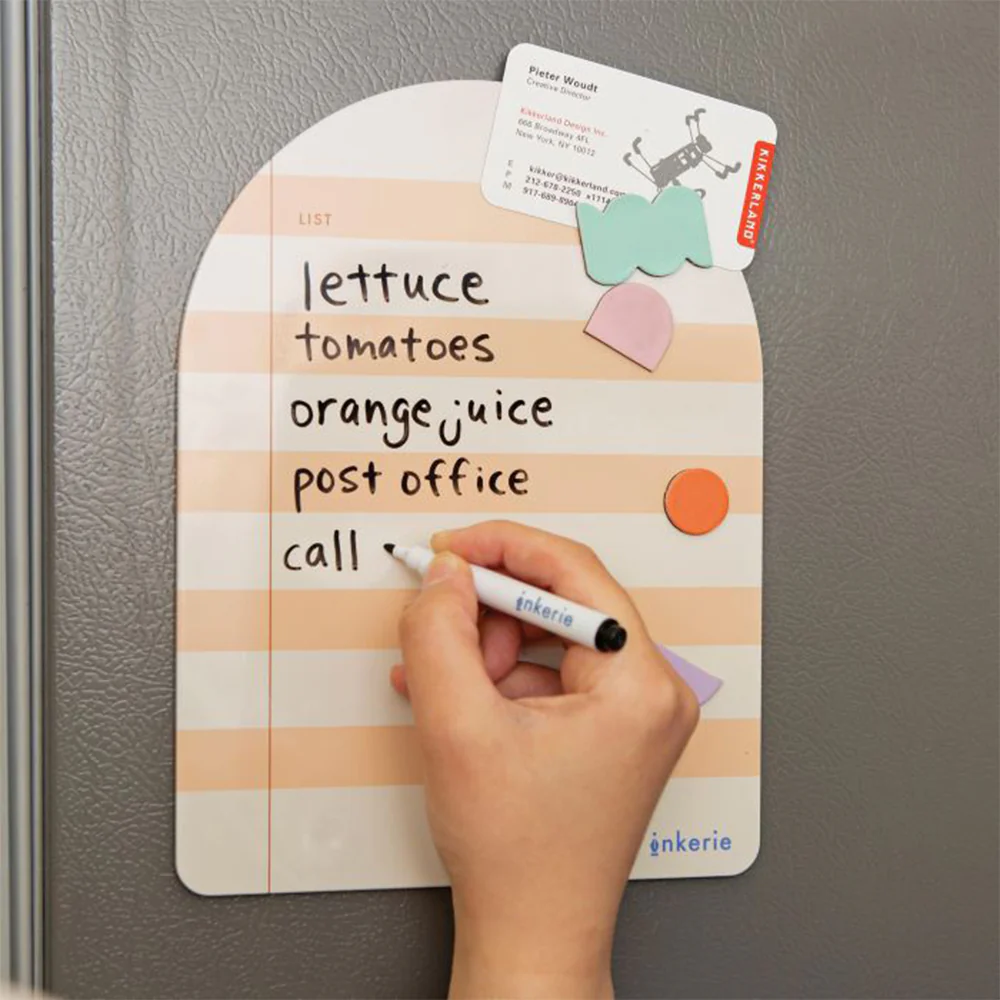 Pieter Woudt
Creative Director
Kikkerland Design Inc.
666 Broadway 4FL
New York, NY 10012
E kikker@kikkerland.com
P 212-678-2250 x1714
M 917-689-890
KIKKERLAND
LIST
lettuce
tomatoes
orange juice
post office
call
inkerie
inkerie